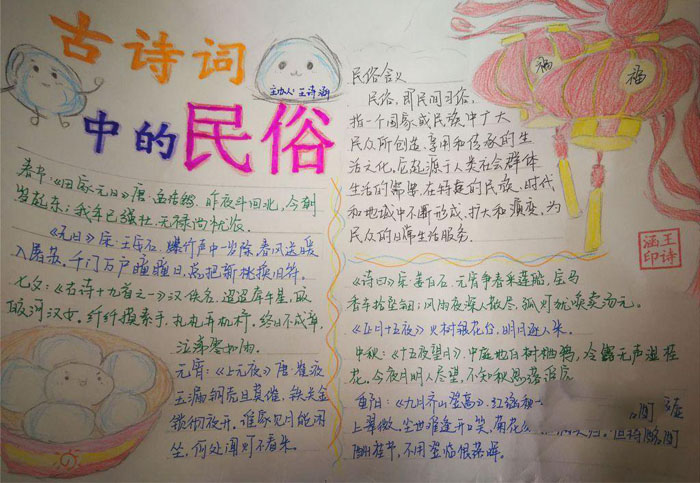 古诗词
中的民俗
主办人：王诗涵
春节：《田家元日》唐·孟浩然 昨夜斗回北，今朝
岁起东；我年已强壮，无禄尚忧农。
《元日》宋·王安石 爆竹声中一岁除，春风送暖
入屠苏。千门万户瞳瞳日，总把新桃换旧符。
七夕：《古诗十九首之一》汉·佚名 迢迢牵牛星，皎
皎河汉女。纤纤擢素手，札札弄机杼。终日不成章，
泣涕零如雨。
元宵：《上元夜》唐·崔液
玉漏铜壶且莫催，铁关金
锁彻夜开，谁家见月能闲
坐，何处闻灯不看来。
民俗含义
民俗，即民间习俗，
指一个国家或民族中广大
民众所创造、享用和传承的生
活文化，它起源于人类社会群体
生活的需要，在特定的民族、时代
和地域中不断形成、扩大和演变，为
民众的日常生活服务。
福
福
王诗
涵印
《诗曰》宋·姜白石 元宵争看采莲船，宝马
香车拾坠钿；风雨夜深人散尽，孤灯犹唤卖汤元。
《正月十五夜》火树银花合，明月逐人来。
中秋：《十五夜望月》中庭地白树栖鸦，冷露无声湿桂
花，今夜月明人尽望，不知秋思落谁家
重阳：《九月齐山登高》江涵秋
上翠微，尘世难逢开口笑，菊花
酬佳节，不用登临恨落晖。